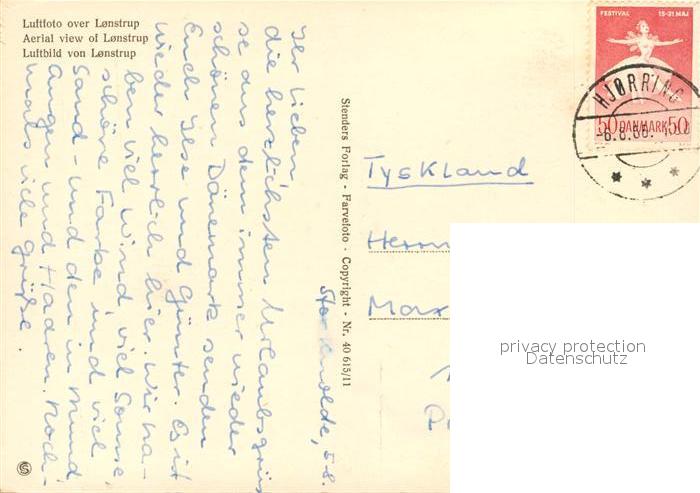 Luftfoto over Lønstrup
Aerial view of Lønstrup
Luftbild von Lønstrup
5.8.
Ihr Lieben
die herzlichsten Urlaubsgrüs
se aus dem immer wieder
schönen Dänemark senden
Euch Ilse und Günter. Es ist
wieder herrlich hier. Wir ha-
ben viel Wind, viel Sonne,
schöne Farbe und viel
Sand - und den in Mund
Augen und Haaren. Noch-
mals viele Grüße.
Stenders Forlag - Farvefoto - Copyright - Nr. 40 615/11
FESTIVAL 15-31 MAJ
HJØRRING
50 DANMARK 50
Tyskland
Herrn
Max
privacy protection
Datenschutz